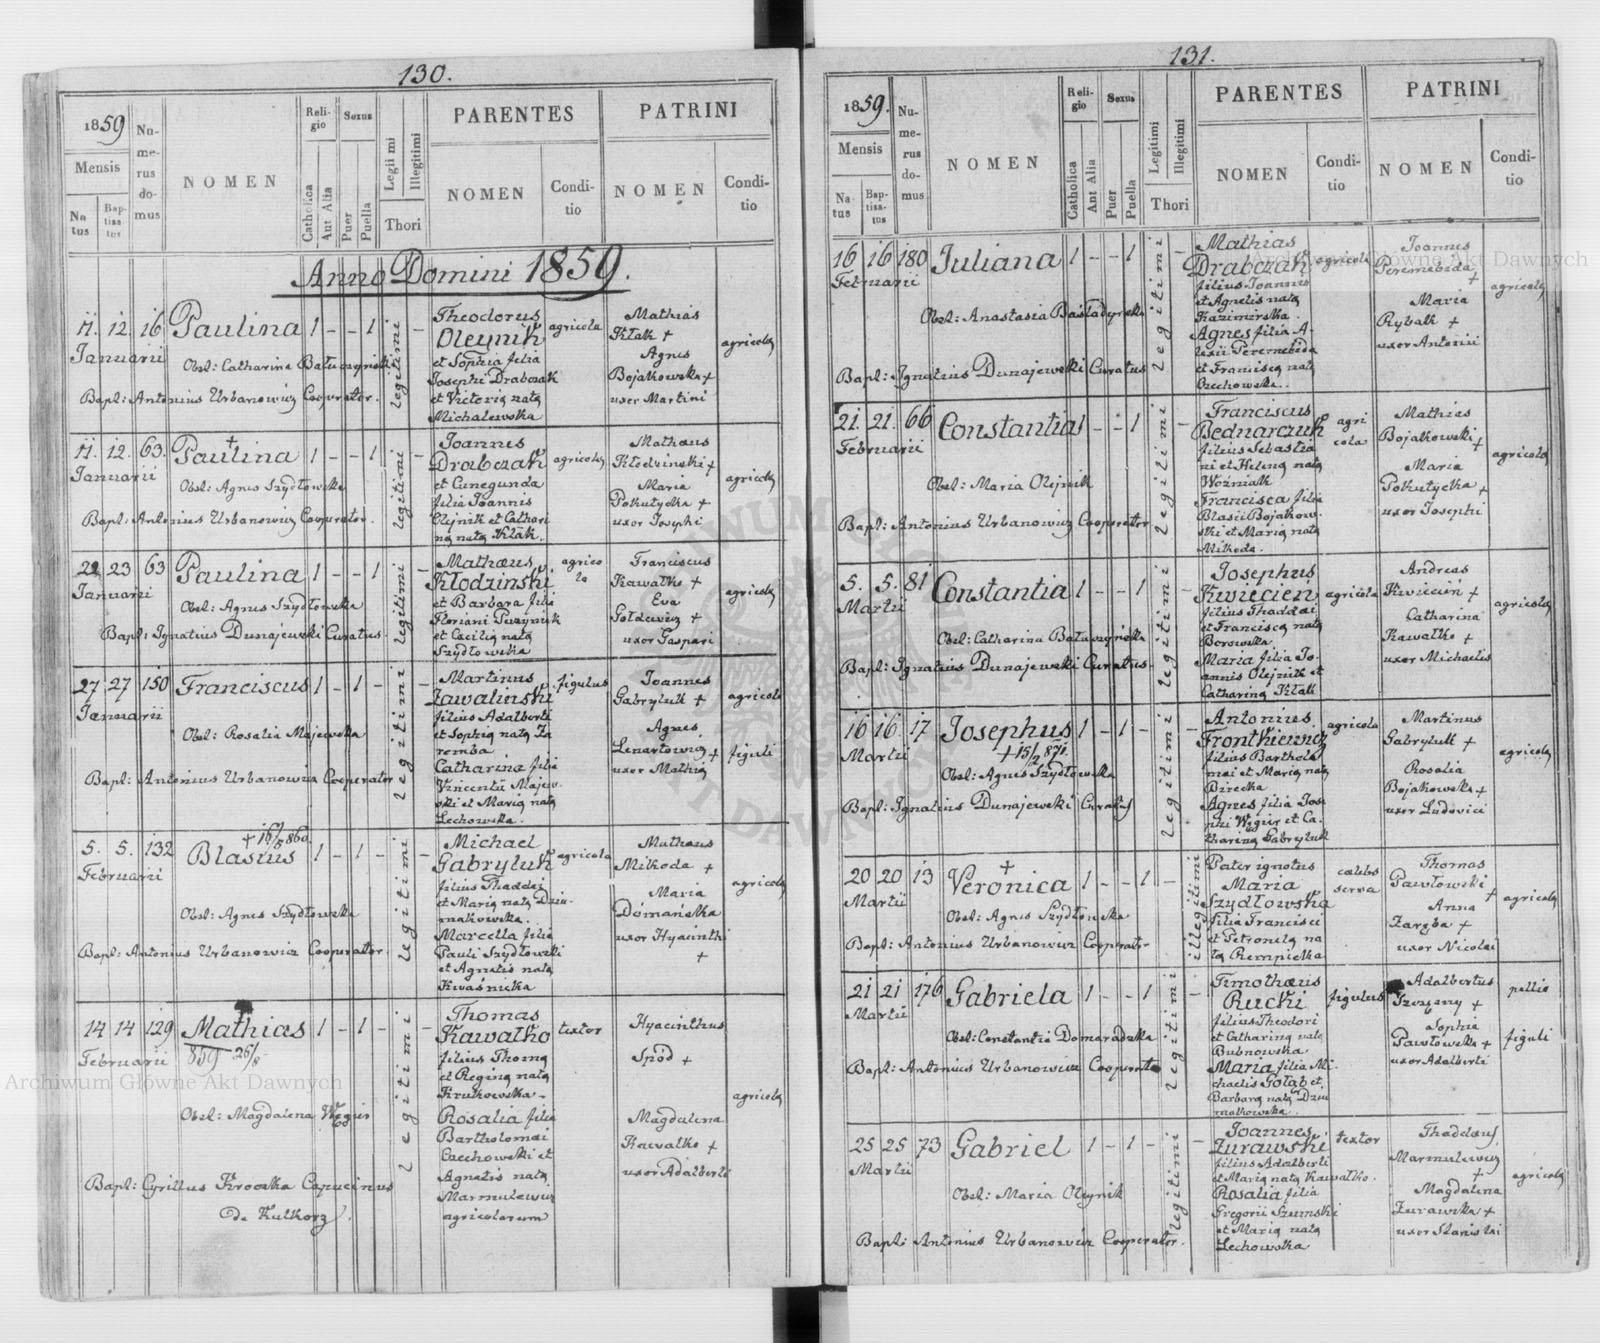 130.
1859
Mensis
Na
tus
Bap-
tisa
tus
Nu-
me-
rus
do-
mus
NOMEN
Reli-
gio
Catholica
Aut Alia
Sexus
Puer
Puella
Legiti mi
Illegitimi
Thori
PARENTES
NOMEN
Condi-
tio
PATRINI
NOMEN
Condi-
tio
Anno Domini 1859.
11. 12. 16 Paulina 1 - - 1 legitimi -
Januarii
Obst: Catharina Batuszyńska
Bapt: Antonius Urbanowicz Cooperator.
Theodorus
Oleynik
et Sophia filia
Josephi Drabczak
et Victoria nata
Michalewska
agricola
Mathias
Kłak +
Agnes
Bojakowska +
uxor Martini
agricola
11. 12. 63. Paulina 1 - - 1 legitimi -
Januarii
Obst: Agnes Szydłowska
Bapt: Antonius Urbanowicz Cooperator.
Joannes
Drabczak
et Cunegunda
filia Joannis
Olejnik et Cathari
na nata Kłak.
agricola
Mathaus
Kłodzinski +
Maria
Pokutycka +
uxor Josephi
agricola
22 23 63 Paulina 1 - - 1 legitimi -
Januarii
Obst: Agnes Szydłowska
Bapt: Ignatius Dunajewski Curatus.
Mathæus
Kłodzinski
et Barbara filia
Floriani
et Cacilia nata
Szydłowska
agrico
la
Franciscus
Kawałko +
Eva
Gołdewicz +
uxor Gaspari
agricola
27 27 150 Franciscus 1 - 1 - legitimi -
Januarii
Obst: Rosalia Majewska
Bapt: Antonius Urbanowicz Cooperator
Martinus
Zawalinski
filius Adalberti
et Sophia nata Za
remba
Catharina filia
Vincentii Majew-
ski et Maria nata
Lechowska.
figulus
Joannes
Gabryluk +
Agnes
Lenartowicz +
uxor Mathia
agricola
figuli
+ 16/8 860
5. 5. 132 Blasius 1 - 1 - legitimi -
Februarii
Obst: Agnes Szydłowska
Bapt: Antonius Urbanowicz Cooperator.
Michael
Gabryluk
filius Thaddei
et Maria nata Dziu-
makowska.
Marcella filia
Pauli Szydłowski
et Agnetis nata
Kwaśnicka
agricola
Mathaus
Mikoda +
Maria
Domańska
uxor Hyacinthi
+
agricola
14 14 129 Mathias 1 - 1 - legitimi -
Februarii 859 26/8
Obst: Magdalena Węgier
Bapt: Cyrillus Kroczka Capucinus
de Kutkorz.
Thomas
Kawałko
filius Thoma
et Regina nata
Krukowska.
Rosalia filia
Bartholomai
Czechowski et
Agnetis nata
Marmulewicz
agricolarum
textor
Hyacinthus
Spód +
Magdalena
Kawałko +
uxor Adalberti
agricola
131.
1859.
Mensis
Na
tus
Bap-
tisa-
tus
Nu-
me-
rus
do-
mus
NOMEN
Reli-
gio
Catholica
Aut Alia
Sexus
Puer
Puella
Legitimi
Illegitimi
Thori
PARENTES
NOMEN
Condi-
tio
PATRINI
NOMEN
Condi-
tio
16 16 180 Juliana 1 - - 1 legitimi -
Februarii
Obst: Anastasia
Bapt: Ignatius Dunajewski Curatus
Mathias
Drabczak
filius Joannis
et Agnetis nata
Kazimirska.
Agnes filia A-
lexii Peremebida
et Francisca nata
Czechowska.
agricola
Joannes
Peremebida
+
Maria
Rybak +
uxor Antonii
agricola
21. 21. 66 Constantia 1 - - 1 legitimi -
Februarii
Obst: Maria Olejnik
Bapt: Antonius Urbanowicz Cooperator
Franciscus
Bednarczuk
filius Sebastia
ni et Helena nata
Wozniak
Francisca filia
Blasii Bojakow-
ski et Maria nata
Mikoda.
agri
cola
Mathias
Bojakowski +
Maria
Pokutycka +
uxor Josephi
agricola
5. 5. 81 Constantia 1 - - 1 legitimi -
Martii
Obst: Catharina Batuszyńska
Bapt: Ignatius Dunajewski Curatus.
Josephus
Kwiecien
filius Thaddai
et Francisca nata
Borowska
Maria filia Jo-
annis Olejnik et
Catharina Kłak
agricola
Andreas
Kwiecień +
Catharina
Kawałko +
uxor Michaelis
agricola
16 16. 17 Josephus 1 - 1 - legitimi -
Martii + 15/2 871.
Obst: Agnes Szydłowska
Bapt: Ignatius Dunajewski Curatus
Antonius
Frontkiewicz
filius Barthola
mai et Maria nata
Birecka
Agnes filia Jose
phi Węgier et Ca-
tharina Gabryluk
agricola
Martinus
Gabryluk +
Rosalia
Bojakowska +
uxor Ludovici
agricola
+
20 20 13 Veronica 1 - - 1 - illegitimi
Martii
Obst: Agnes Szydłowska
Bapt: Antonius Urbanowicz Cooperator
Pater ignotus
Maria
Szydłowska
filia Francisci
et Petronela na
ta Rempicka
calebs
serva
Thomas
Pawłowski
+
Anna
Zaręba +
uxor Nicolai
agricola
21 21 176 Gabriela 1 - - 1 legitimi -
Martii
Obst: Constantia Domaradzka
Bapt: Antonius Urbanowicz Cooperator
Timothæus
Rucki
filius Theodori
et Catharina nata
Bubnowska
Maria filia Mi-
chaelis Gołąb et
Barbara nata Dziu
makowska.
figulus
Adalbertus
+
Sophia
Pawłowska +
uxor Adalberti
pellio
figuli
25 25 73 Gabriel 1 - 1 - legitimi -
Martii
Obst: Maria Oleynik
Bapt: Antonius Urbanowicz Cooperator.
Joannes
Zurawski
filius Adalberti
et Maria nata Kawałko.
Rosalia filia
Gregorii Szumski
et Maria nata
Lechowska
textor
Thaddaus
Marmulewicz
+
Magdalena
Zurawska +
uxor Stanislai
agricola
Archiwum Główne Akt Dawnych
Archiwum Główne Akt Dawnych